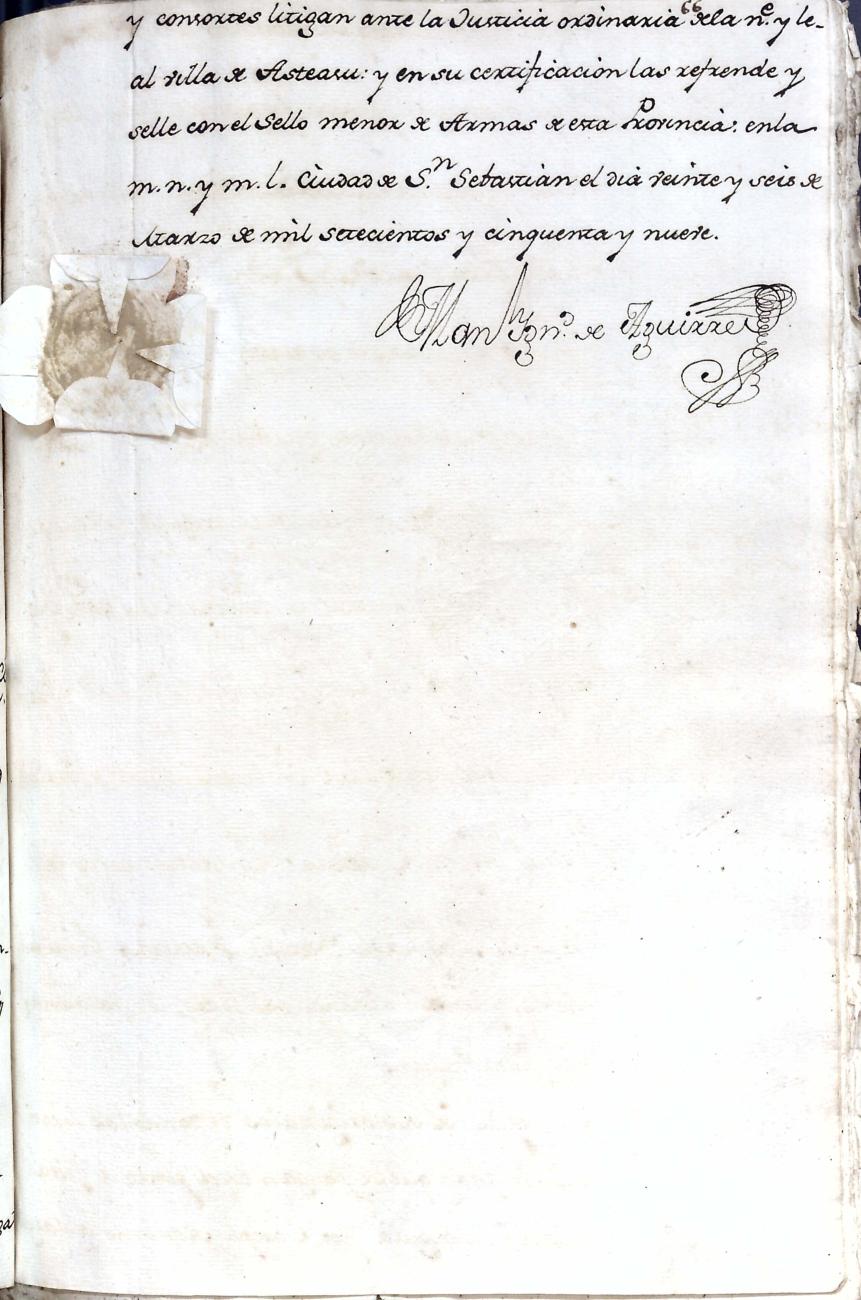 66
y consortes litigan ante la Justicia ordinaria de la n.e y le-
al villa de Asteasu: y en su certificacion las refrende y
selle con el Sello menor de Armas de esta Provincia: en la
m. n. y m. l. Ciudad de S.n Sebastian el dia veinte y seis de
Marzo de mil setecientos y cinquenta y nueve.
Man Ign.o de Aguirre